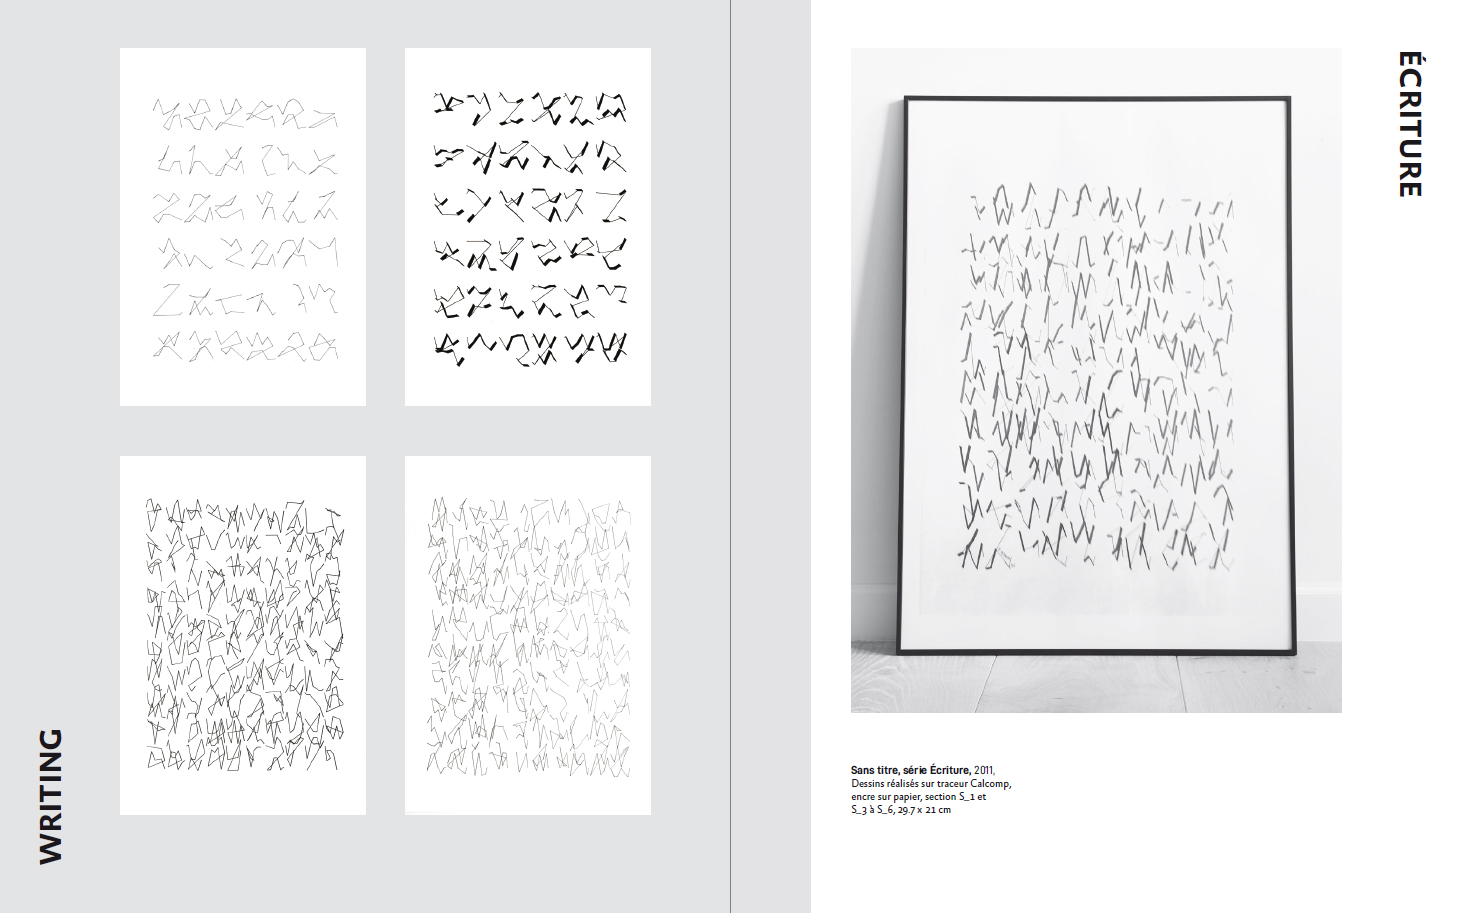 WRITING
ÉCRITURE
Sans titre, série Écriture, 2011,
Dessins réalisés sur traceur Calcomp,
encre sur papier, section S_1 et
S_3 à S_6, 29.7 x 21 cm